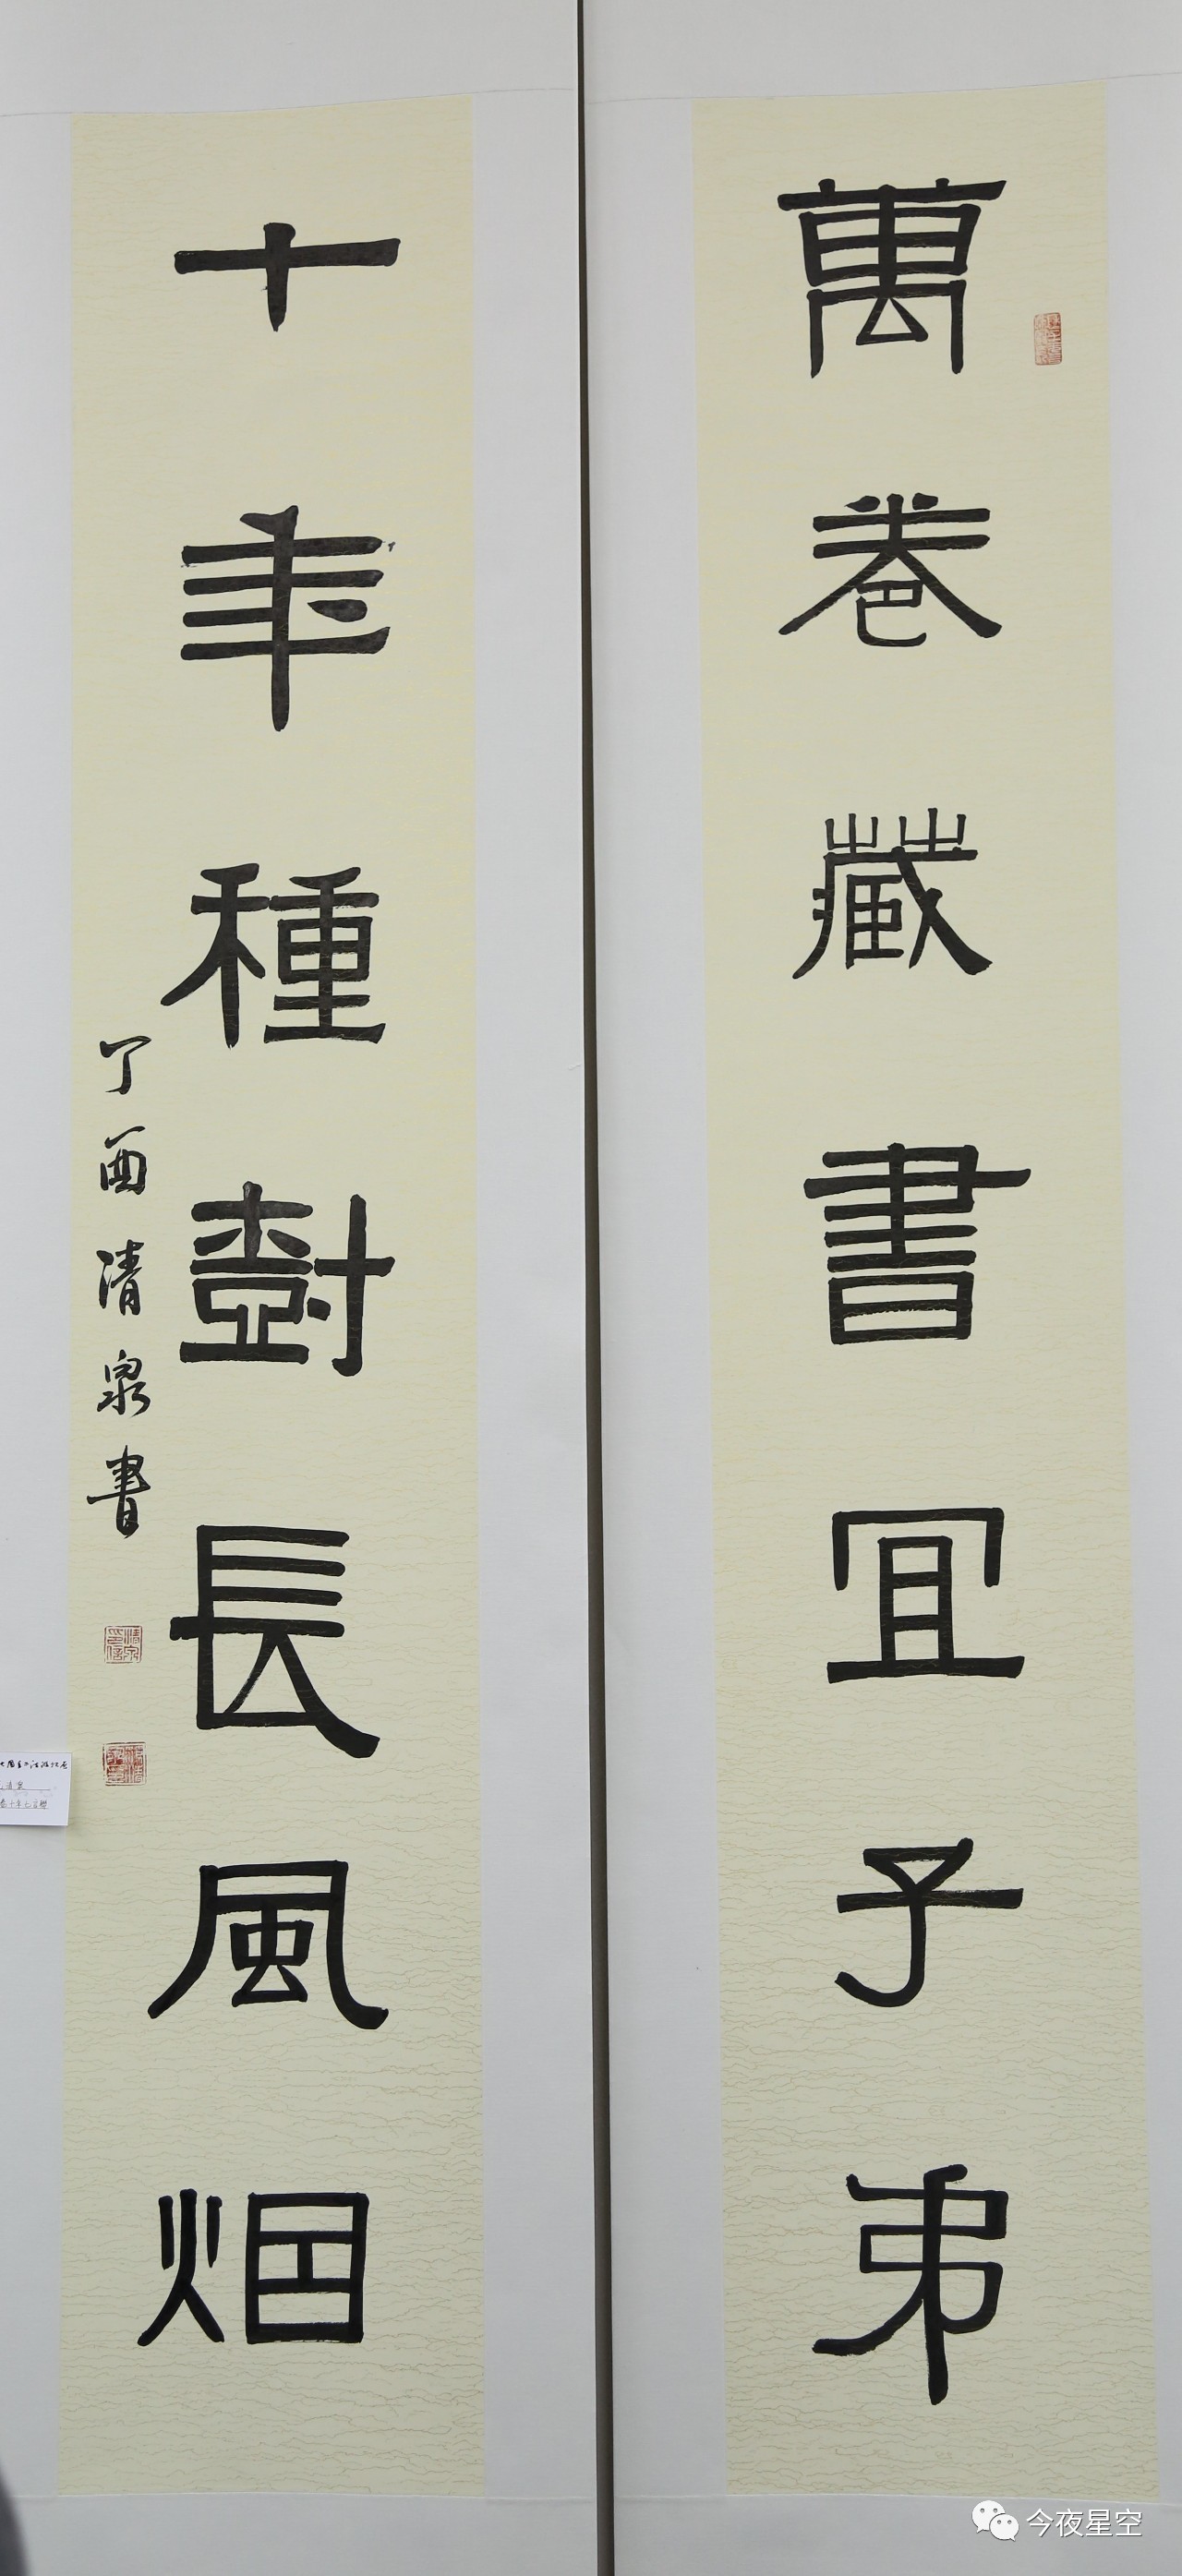 萬卷藏書宜子弟
十年種樹長風烟
丁酉清泉書
清泉
十年七言聯
今夜星空